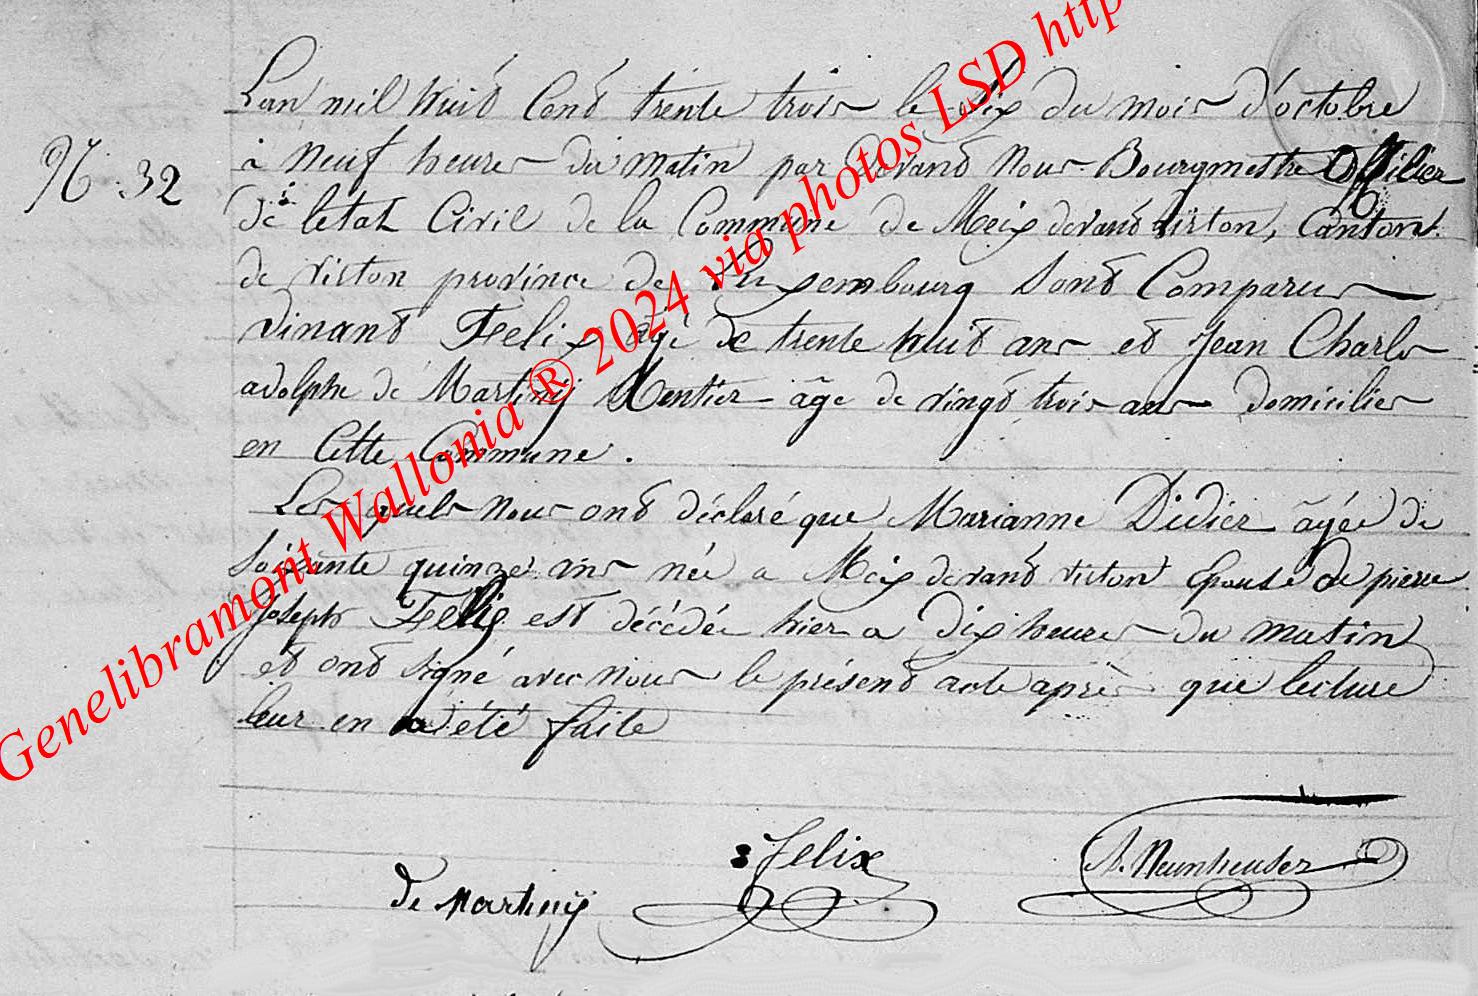 Genelibramont Wallonia ® 2024 via photos LSD http
N. 32
L'an mil huit Cent trente trois le dix du mois d'octobre
à neuf heures du matin par devant nous Bourgmestre Officier
de l'etat Civil de la Commune de Meix devant virton, Canton
de virton province de Luxembourg Sont Comparus
vinant Felix âgé de trente huit ans et Jean Charles
adolphe de Martiny Rentier âge de vingt trois ans domicilies
en Cette Commune.
Les quels nous ont déclaré que Marianne Didier âgée de
Soixante quinze ans née a Meix devant virton Epouse de pierre
Joseph Felix est décédée hier a dix heures du matin
et ont signé avec nous le présent acte après que lecture
leur en a été faite
de Martiny
Felix
Neunheuser